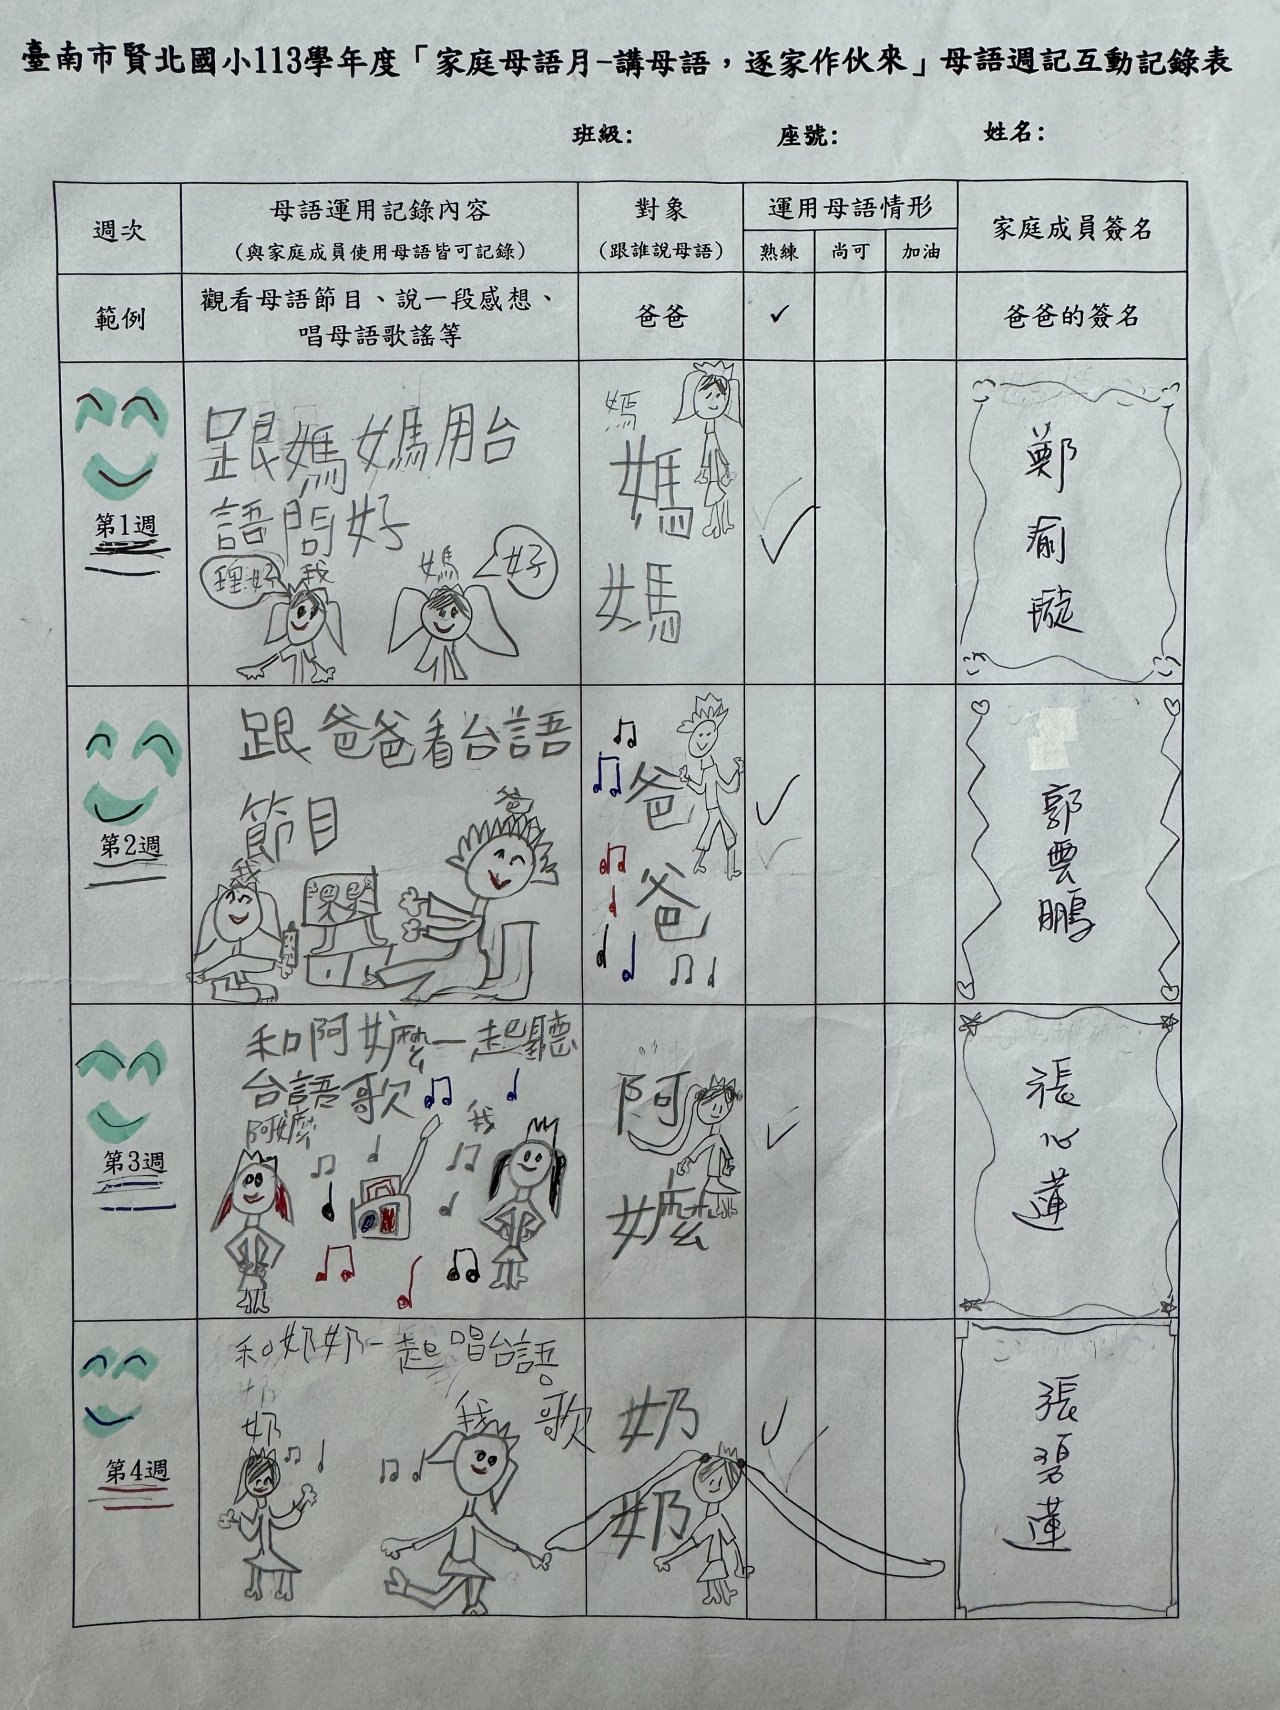 臺南市賢北國小113學年度「家庭母語月-講母語，逐家作伙來」母語週記互動記錄表
班級: 座號: 姓名:
週次
母語運用記錄內容
(與家庭成員使用母語皆可記錄)
對象
(跟誰說母語)
運用母語情形
熟練 尚可 加油
家庭成員簽名
範例
觀看母語節目、說一段感想、
唱母語歌謠等
爸爸
✓
爸爸的簽名
第1週
跟媽媽用台
語問好
我
媽
好
媽
媽
媽
✓
鄭
瑜
璇
第2週
跟爸爸看台語
節目
爸
我
爸
爸
✓
郭
雲
鵬
第3週
和阿嬤一起聽
台語歌
阿嬤
我
阿
嬤
✓
張
心
蓮
第4週
和奶奶一起唱台語
歌
奶
奶
我
奶
奶
✓
張
碧
蓮